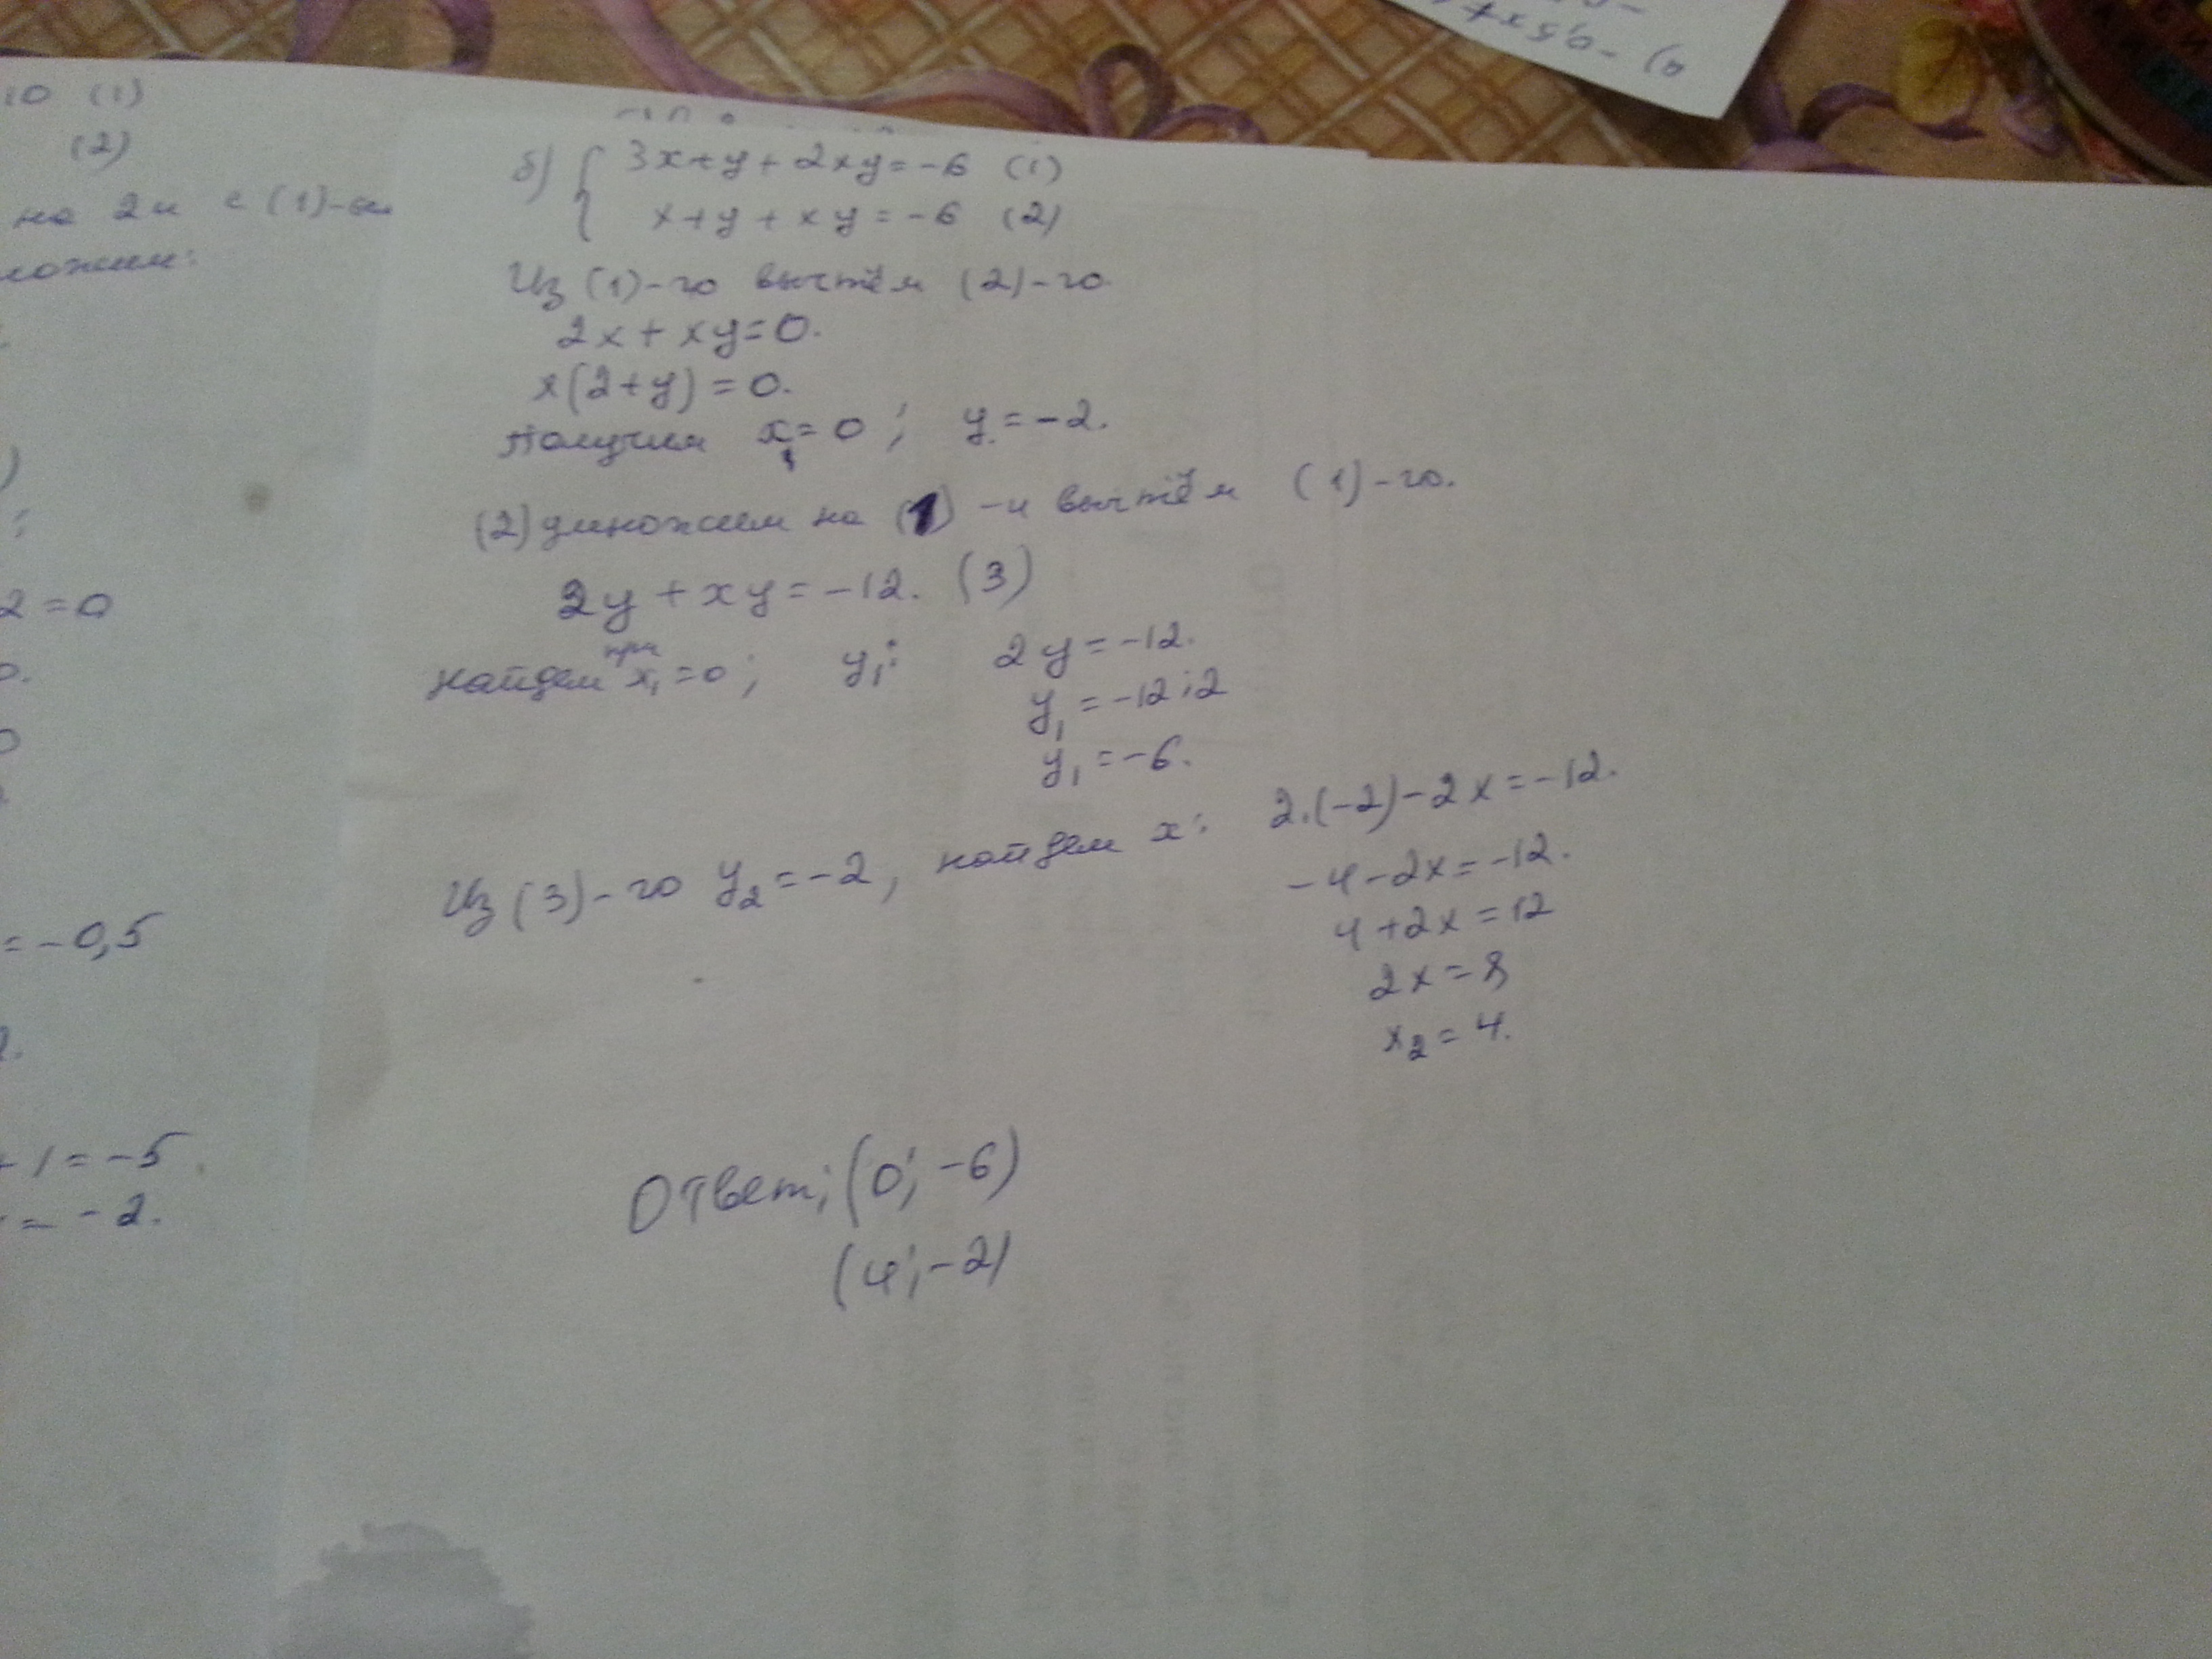 10 (1)
(2)
на 2 и с (1)-ым
ложим:
2 = 0
0.
= -0,5
+ 1 = -5
= -2.
б) { 3x + y + 2xy = -6 (1)
x + y + xy = -6 (2)
Из (1)-го вычтём (2)-го.
2x + xy = 0.
x(2+y) = 0.
получим x₁ = 0; y = -2.
(2) умножим на (1) - и вычтём (1)-го.
2y + xy = -12. (3)
найдем при x₁ = 0; y₁: 2y = -12.
y₁ = -12:2
y₁ = -6.
Из (3)-го y₂ = -2, найдем x: 2·(-2) - 2x = -12.
-4 - 2x = -12.
4 + 2x = 12
2x = 8
x₂ = 4.
Ответ; (0; -6)
(4; -2)